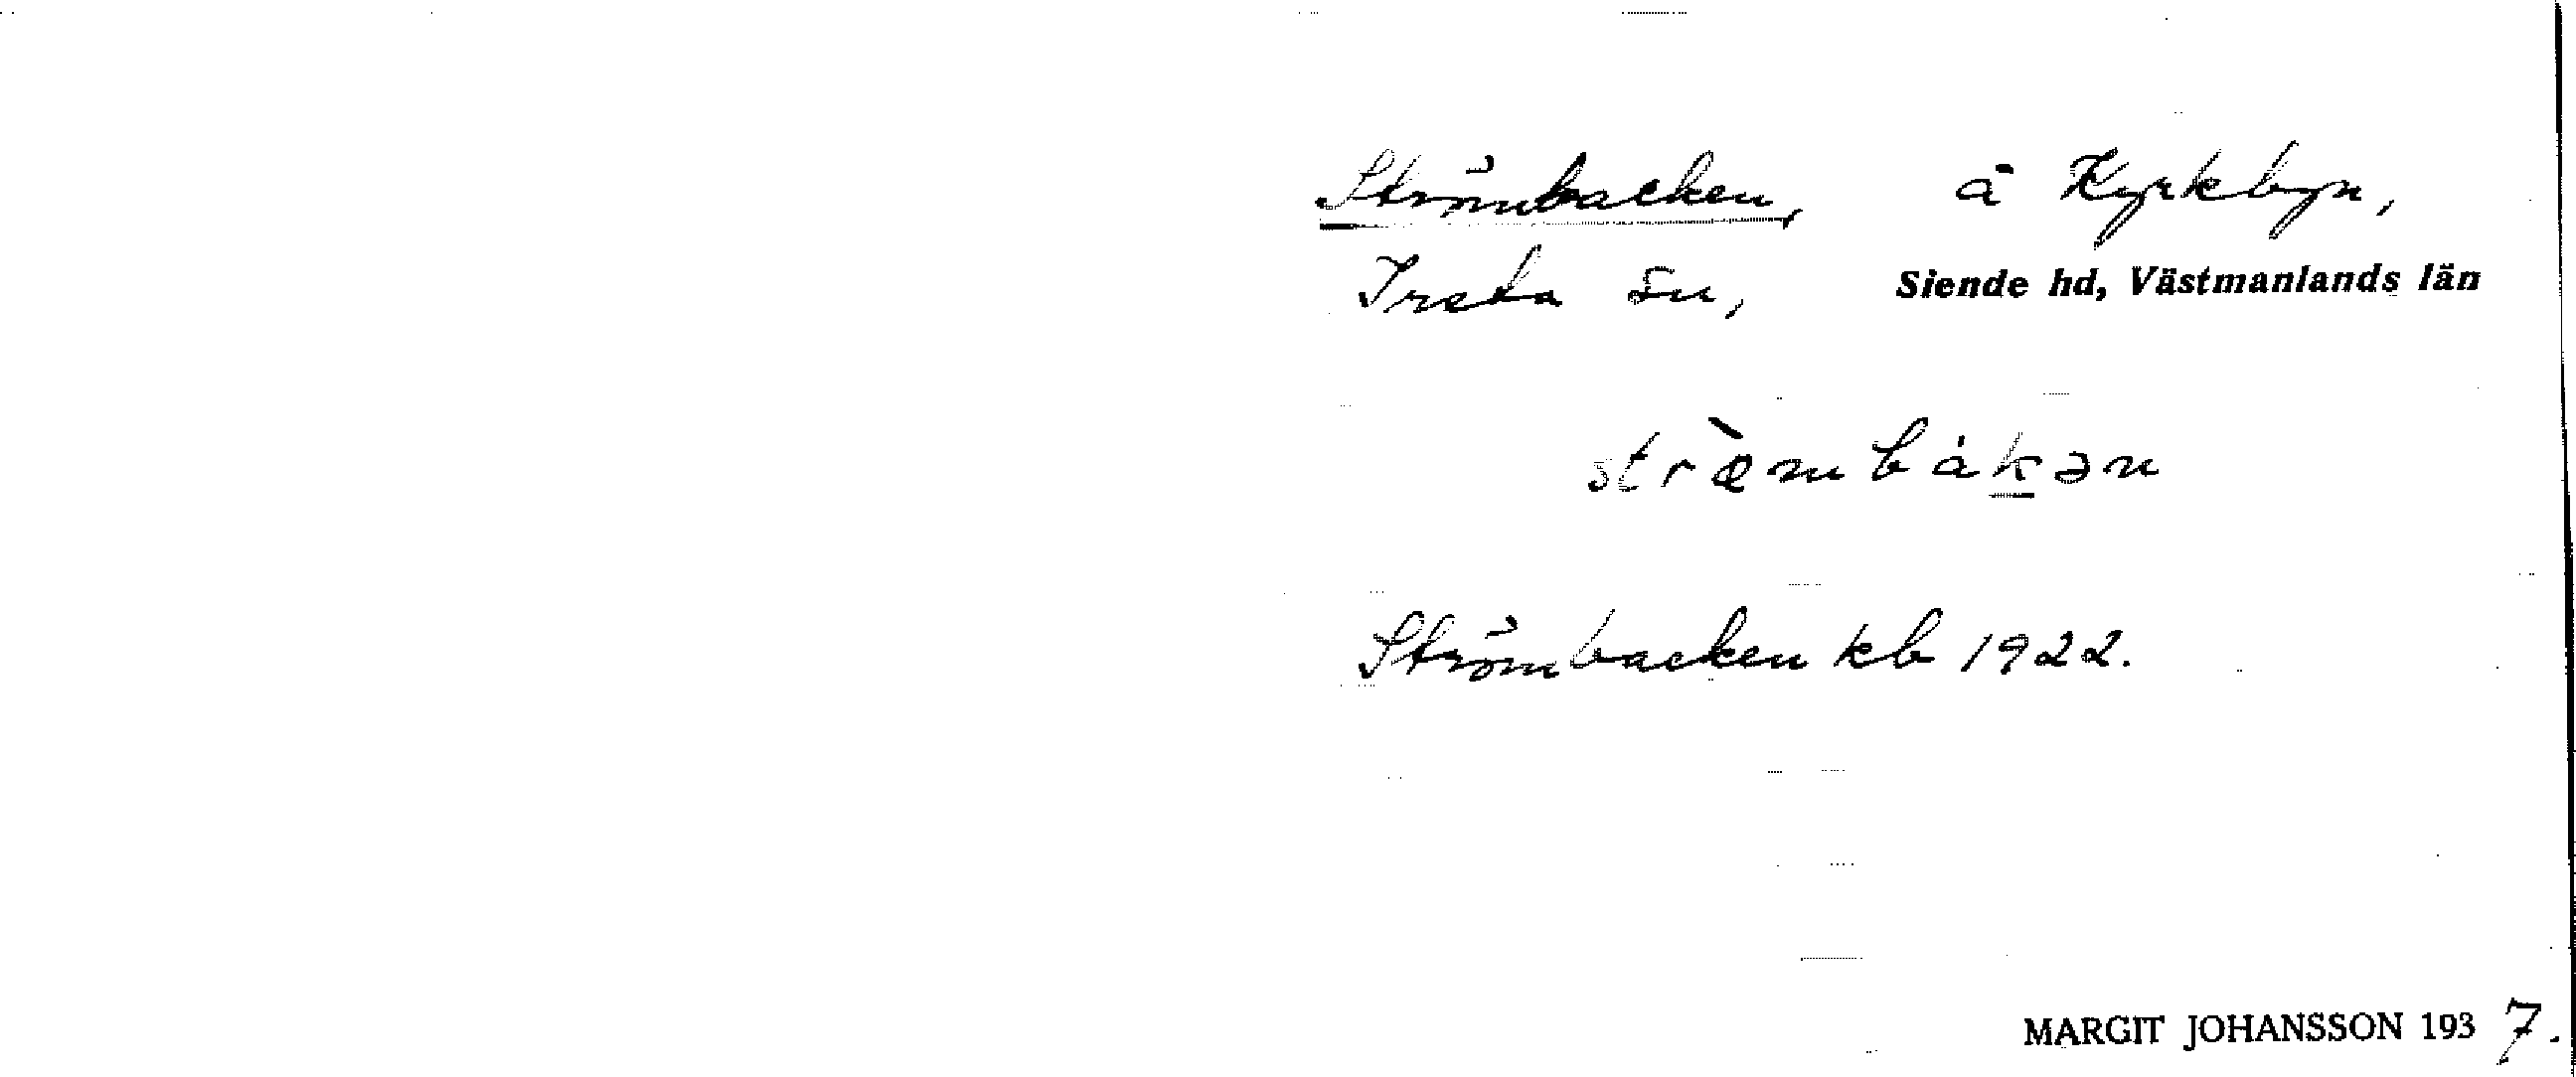 Strömbacken, å Kyrkbyn,
Irsta sn, Siende hd, Västmanlands län
stræ̀mbákən
Strömbacken kb 1922.
MARGIT JOHANSSON 1937.